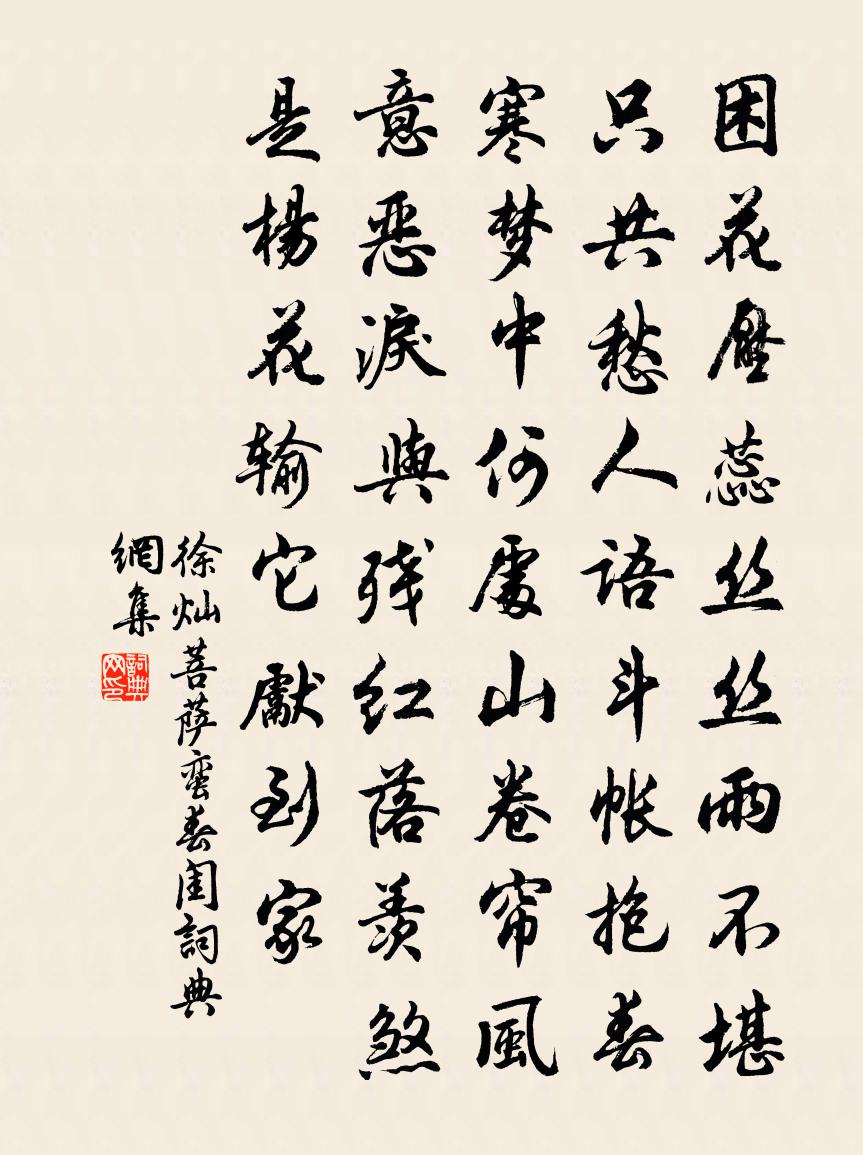 困花壓蕊丝丝雨不堪
只共愁人语斗帐抱春
寒梦中何處山卷帘風
意恶淚與残红落羡煞
是楊花输它獻到家
徐灿菩萨蛮春闺詞典
網集
詞典網印